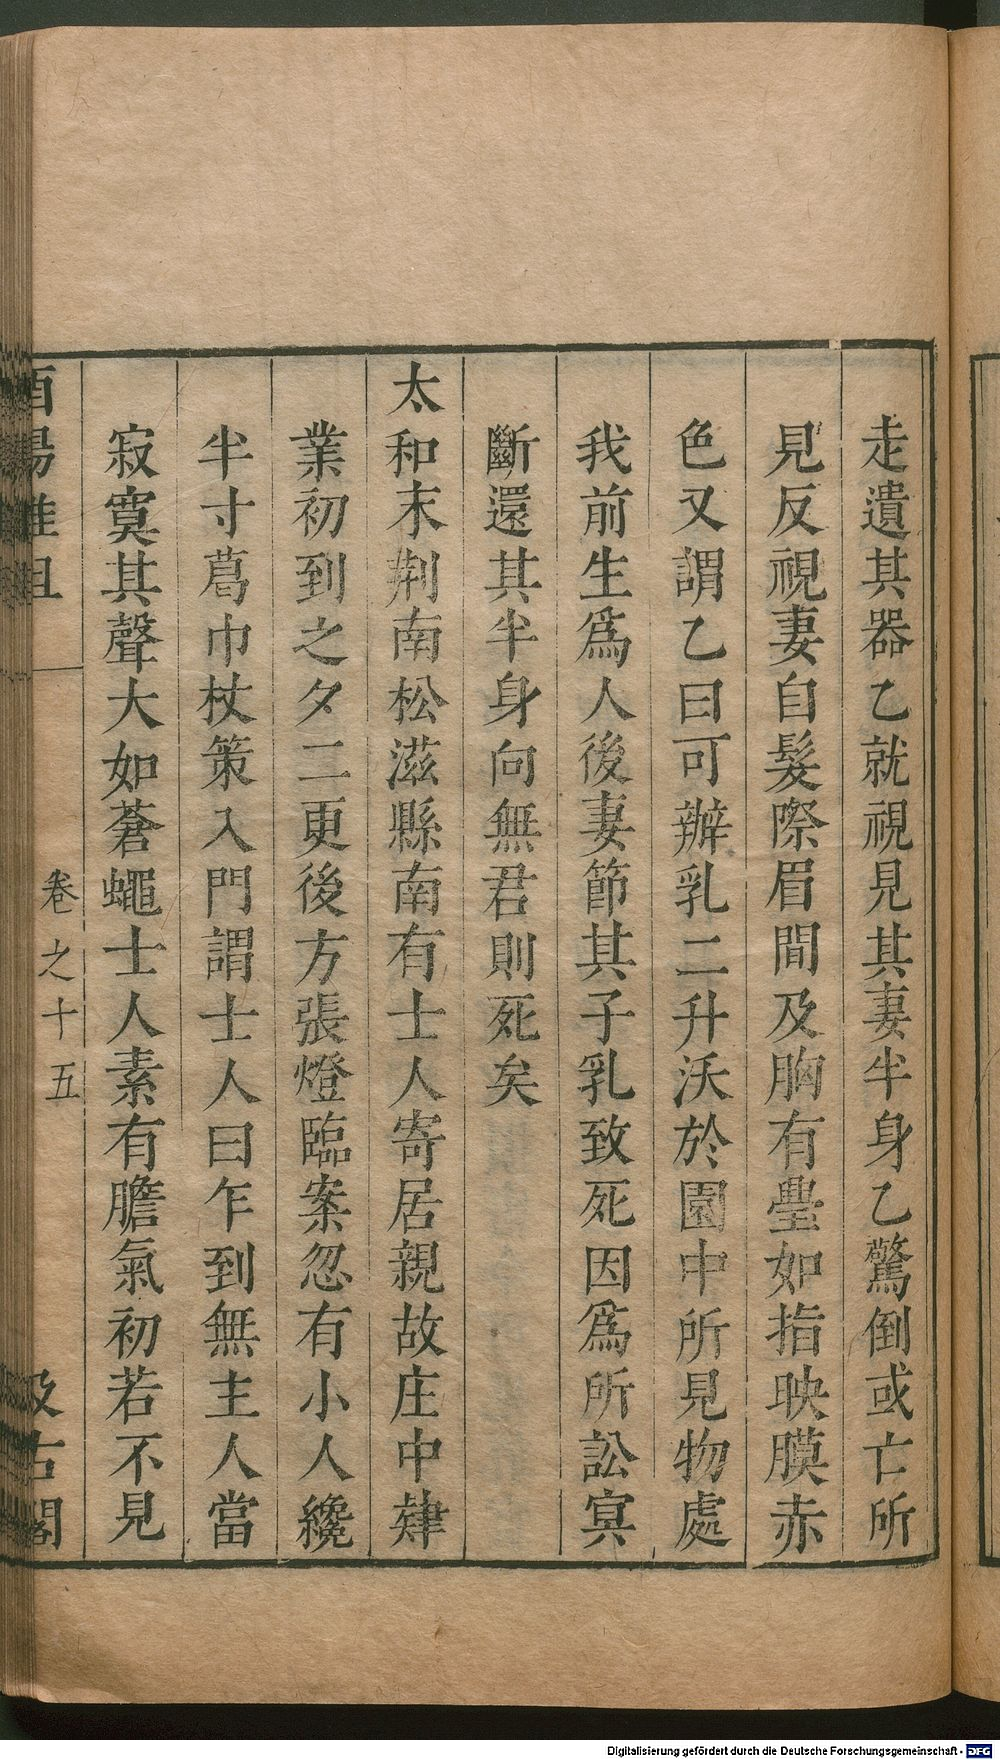 走遺其器乙就視見其妻半身乙驚倒或亡所
見反視妻自髮際眉間及胸有壘如指映膜赤
色又謂乙曰可辦乳二升沃於園中所見物處
我前生爲人後妻節其子乳致死因爲所訟㝠
斷還其半身向無君則死矣
太和末荆南松滋縣南有士人寄居親故庄中肄
業初到之夕二更後方張燈臨案忽有小人纔
半寸葛巾杖策入門謂士人曰乍到無主人當
寂寞其聲大如蒼蠅士人素有膽氣初若不見
酉陽雜俎
卷之十五
汲古閣
Digitalisierung gefördert durch die Deutsche Forschungsgemeinschaft - DFG